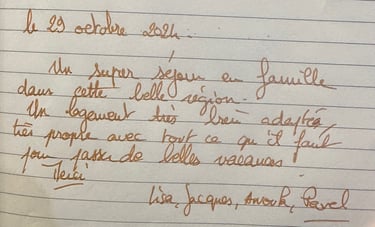 le 29 octobre 2024.
Un super séjour en famille
dans cette belle région.
Un logement très bien adapté,
très propre avec tout ce qu'il faut
pour passer de belles vacances.
Merci
Lisa, Jacques, Anouk, Pavel